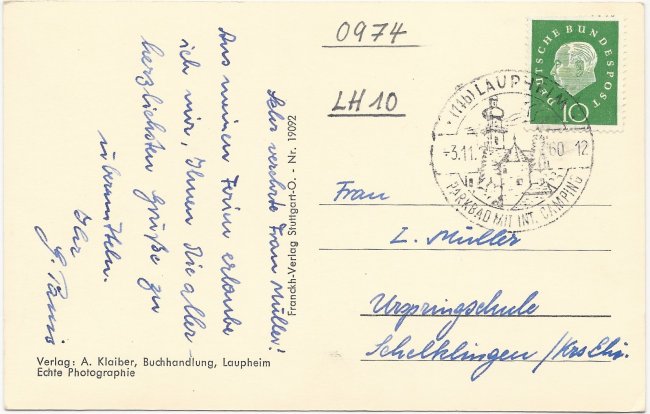 0974
LH10
DEUTSCHE BUNDESPOST
10
(14b) LAUPHEIM
-3.11. 60-12
PARKBAD MIT INT. CAMPING
Sehr verehrte Frau Müller!
Aus meinen Ferien erlaube
ich mir, Ihnen die aller-
herzlichsten Grüße zu
übermitteln.
Ihr
Franckh-Verlag Stuttgart-O. - Nr. 19092
Frau
L. Müller
Urspringschule
Schelklingen / Krs Ehi.
Verlag: A. Klaiber, Buchhandlung, Laupheim
Echte Photographie